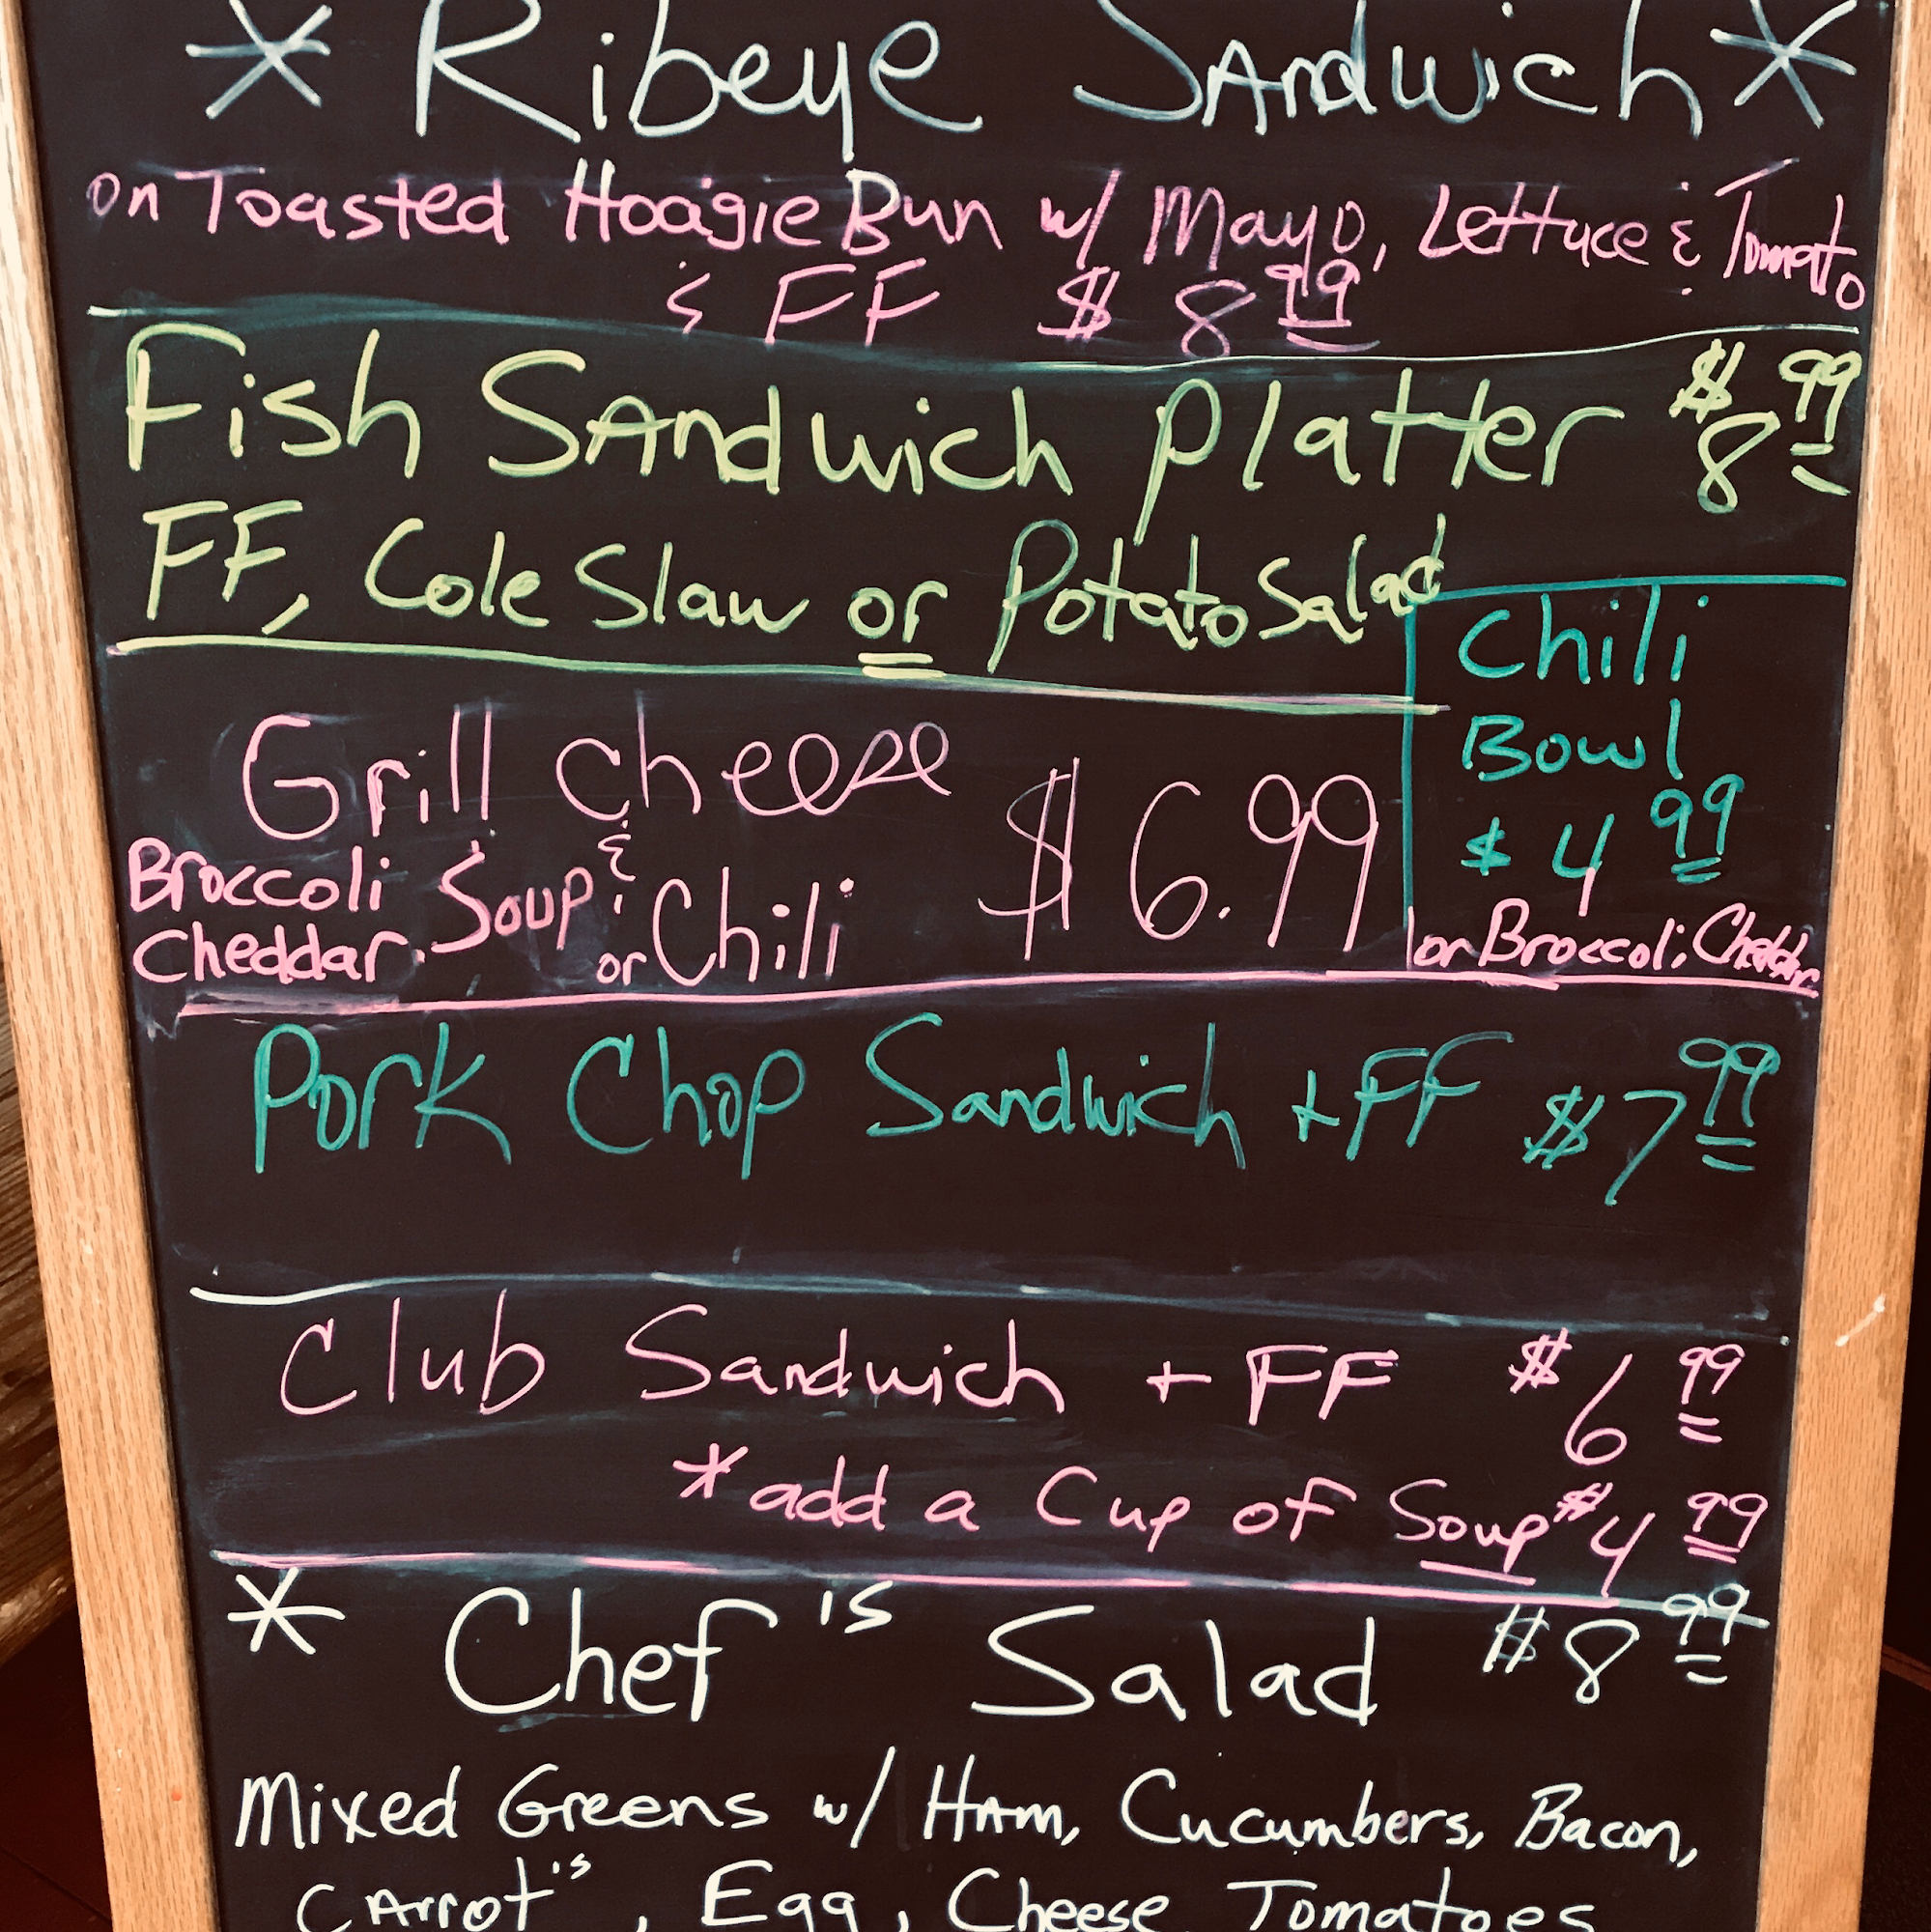 * Ribeye Sandwich *
on Toasted Hoagie Bun w/ Mayo, Lettuce & Tomato
& FF $8.99
Fish Sandwich Platter $8.99
FF, Cole Slaw or Potato Salad
Grill Cheese
&
Broccoli Cheddar. Soup or Chili
$6.99
Chili
Bowl
$4.99
or Broccoli Cheddar
Pork Chop Sandwich + FF $7.99
Club Sandwich + FF $6.99
*add a Cup of Soup $4.99
* Chef's Salad $8.99
Mixed Greens w/ Ham, Cucumbers, Bacon,
Carrot's, Egg, Cheese Tomatoes